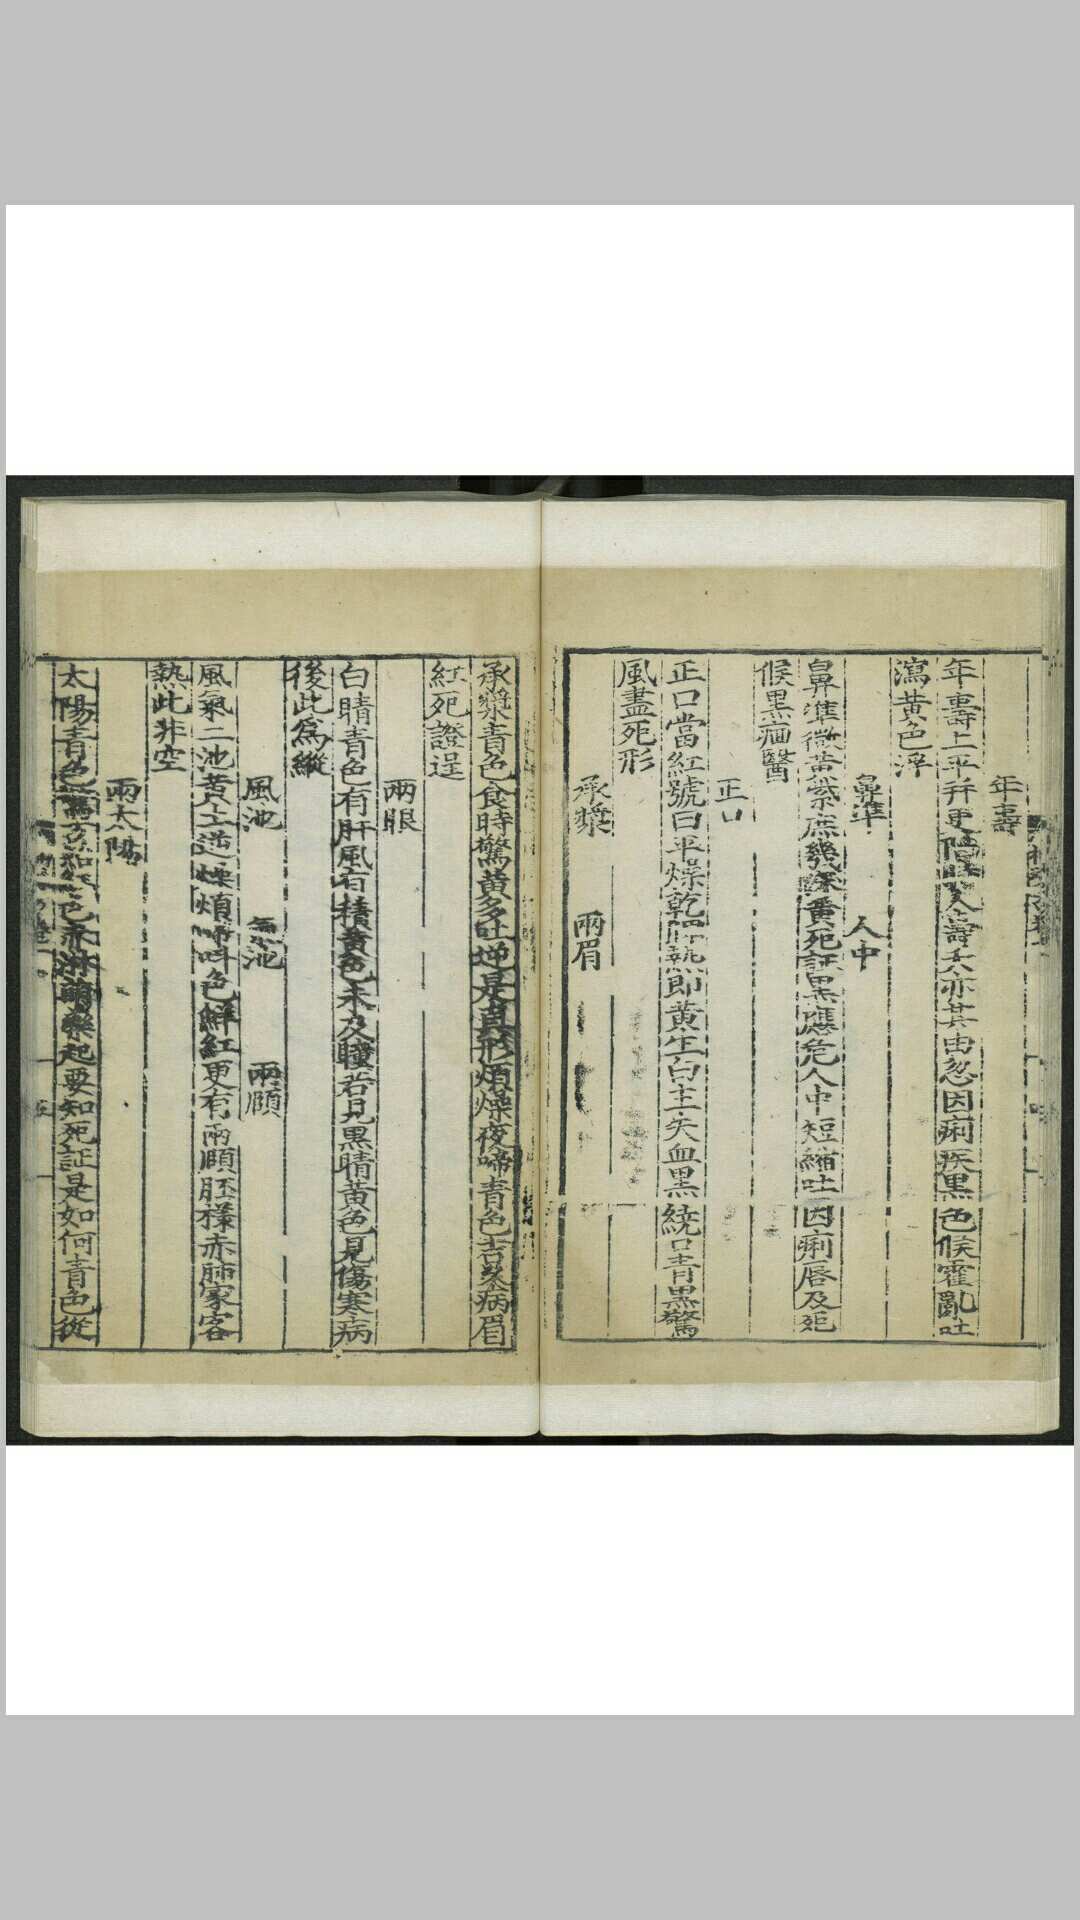 年壽
年壽上平弁更陷人壽夭亦其由忽因痢疾黑色候霍亂吐
瀉黃色滓
鼻準 人中
鼻準微黃紫庶幾深黃死証黑應危人中短縮吐因痢唇及死
候黑𤵜醫
正口
正口當紅號曰平燥乾脾熱即黃生白主失血黑繞口青黑驚
風盡死形
承漿 兩眉
承漿青色食時驚黃多吐逆是真形煩燥夜啼青色吉久病眉
紅死證逞
兩眼
白睛青色有肝風有積黃色未及瞳若見黑睛黃色見傷寒病
後此爲縱
風池 氣池 兩頤
風氣二池黃土逆燥煩啼叫色鮮紅更有兩頤胚樣赤肺家客
熱此非空
兩太陽
太陽青色驚方始紅色赤淋萌孽起要知死証是如何青色從